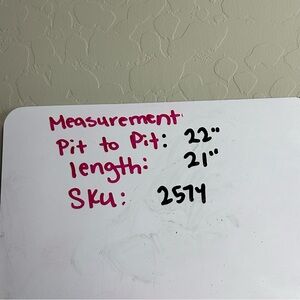 Measurement:
Pit to Pit: 22"
length: 21"
SKU: 2574